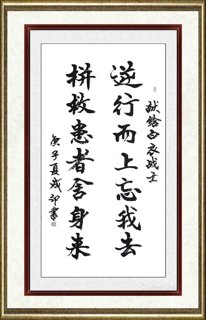 献给白衣战士
逆行而上忘我去
拼救患者舍身来
庚子夏成印书